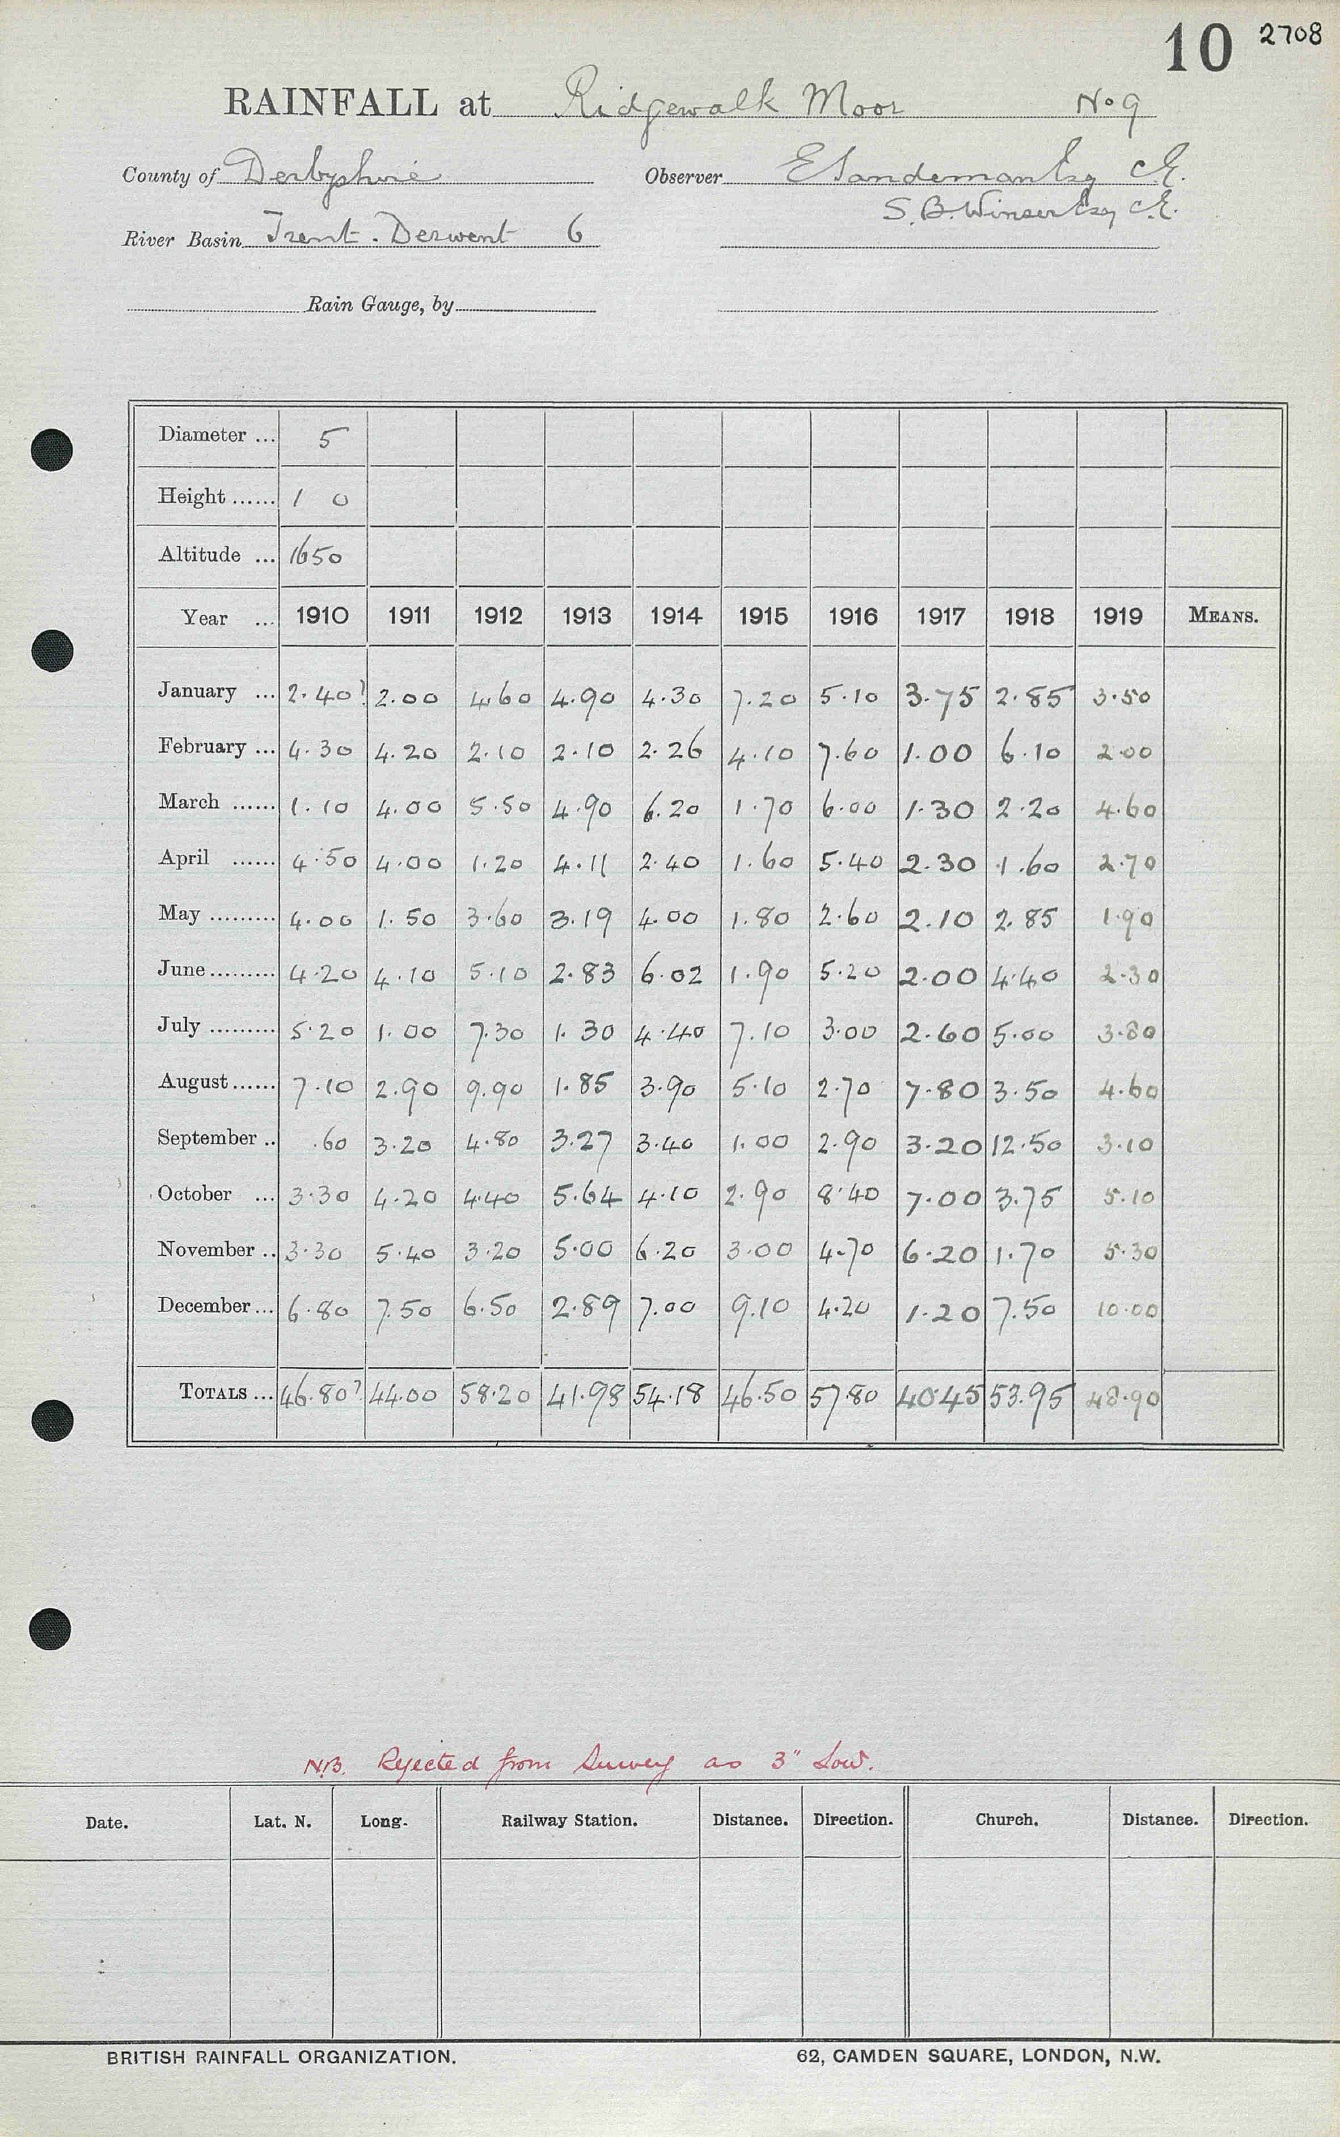 10 2708
RAINFALL at Ridgewalk Moor No 9
County of Derbyshire Observer E Sandeman Esq C.E.
S. B. Winser Esq C.E.
River Basin Trent. Derwent 6
Rain Gauge, by
Diameter ... 5
Height ...... 1 0
Altitude ... 1650
Year ... 1910 1911 1912 1913 1914 1915 1916 1917 1918 1919 MEANS.
January ... 2.40? 2.00 4.60 4.90 4.30 7.20 5.10 3.75 2.85 3.50
February ... 4.30 4.20 2.10 2.10 2.26 4.10 7.60 1.00 6.10 2.00
March ...... 1.10 4.00 5.50 4.90 6.20 1.70 6.00 1.30 2.20 4.60
April ...... 4.50 4.00 1.20 4.11 2.40 1.60 5.40 2.30 1.60 2.70
May ......... 4.00 1.50 3.60 3.19 4.00 1.80 2.60 2.10 2.85 1.90
June ......... 4.20 4.10 5.10 2.83 6.02 1.90 5.20 2.00 4.40 2.30
July ......... 5.20 1.00 7.30 1.30 4.40 7.10 3.00 2.60 5.00 3.80
August ...... 7.10 2.90 9.90 1.85 3.90 5.10 2.70 7.80 3.50 4.60
September .. .60 3.20 4.80 3.27 3.40 1.00 2.90 3.20 12.50 3.10
October ... 3.30 4.20 4.40 5.64 4.10 2.90 8.40 7.00 3.75 5.10
November .. 3.30 5.40 3.20 5.00 6.20 3.00 4.70 6.20 1.70 5.30
December ... 6.80 7.50 6.50 2.89 7.00 9.10 4.20 1.20 7.50 10.00
TOTALS ... 46.80? 44.00 58.20 41.98 54.18 46.50 57.80 40.45 53.95 48.90
N.B. Rejected from Survey as 3" Low.
Date. Lat. N. Long. Railway Station. Distance. Direction. Church. Distance. Direction.
BRITISH RAINFALL ORGANIZATION. 62, CAMDEN SQUARE, LONDON, N.W.